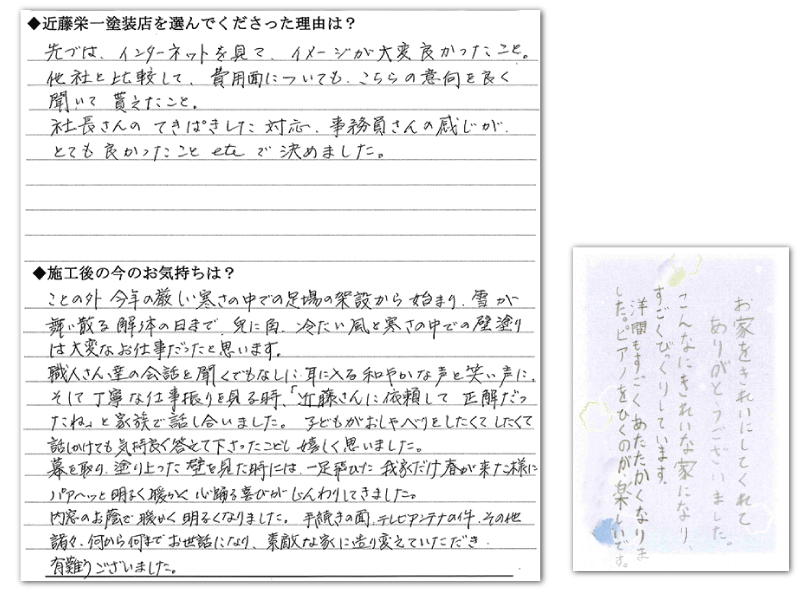 ◆近藤栄一塗装店を選んでくださった理由は？
先づは、インターネットを見て、イメージが大変良かったこと。
他社と比較して、費用面についても、こちらの意向を良く
聞いて貰えたこと。
社長さんの てきぱきした 対応、事務員さんの感じが、
とても良かったこと etc で 決めました。
◆施工後の今のお気持ちは？
ことの外 今年の厳しい寒さの中での足場の架設から 始まり、雪が
舞い散る 解体の日まで、兎に角、冷たい風と寒さの中での壁塗り
は大変なお仕事だったと思います。
職人さん達の会話を聞くでもなしに耳に入る和やかな声と笑い声に、
そして丁寧な仕事振りを見る時、「近藤さんに依頼して 正解だっ
たね」と家族で話し合いました。 子どもがおしゃべりをしたくてしたくて
話しかけても気持良く答えて下さったことも 嬉しく思いました。
幕を取り、塗り上った壁を見た時には、一足飛びに 我家だけ春が来た様に
パアーッと明るく暖かく 心踊る喜びが じんわりしてきました。
内窓のお蔭で暖かく 明るくなりました。 手続きの面、テレビアンテナの件、その他
諸々、何から何までお世話になり、素敵な家に造り変えていただき
有難うございました。
お家をきれいにしてくれて
ありがとうございました。
こんなにきれいな家になり、
すごくびっくりしています。
洋間もすごくあたたかくなりま
した。ピアノをひくのが楽しいです。